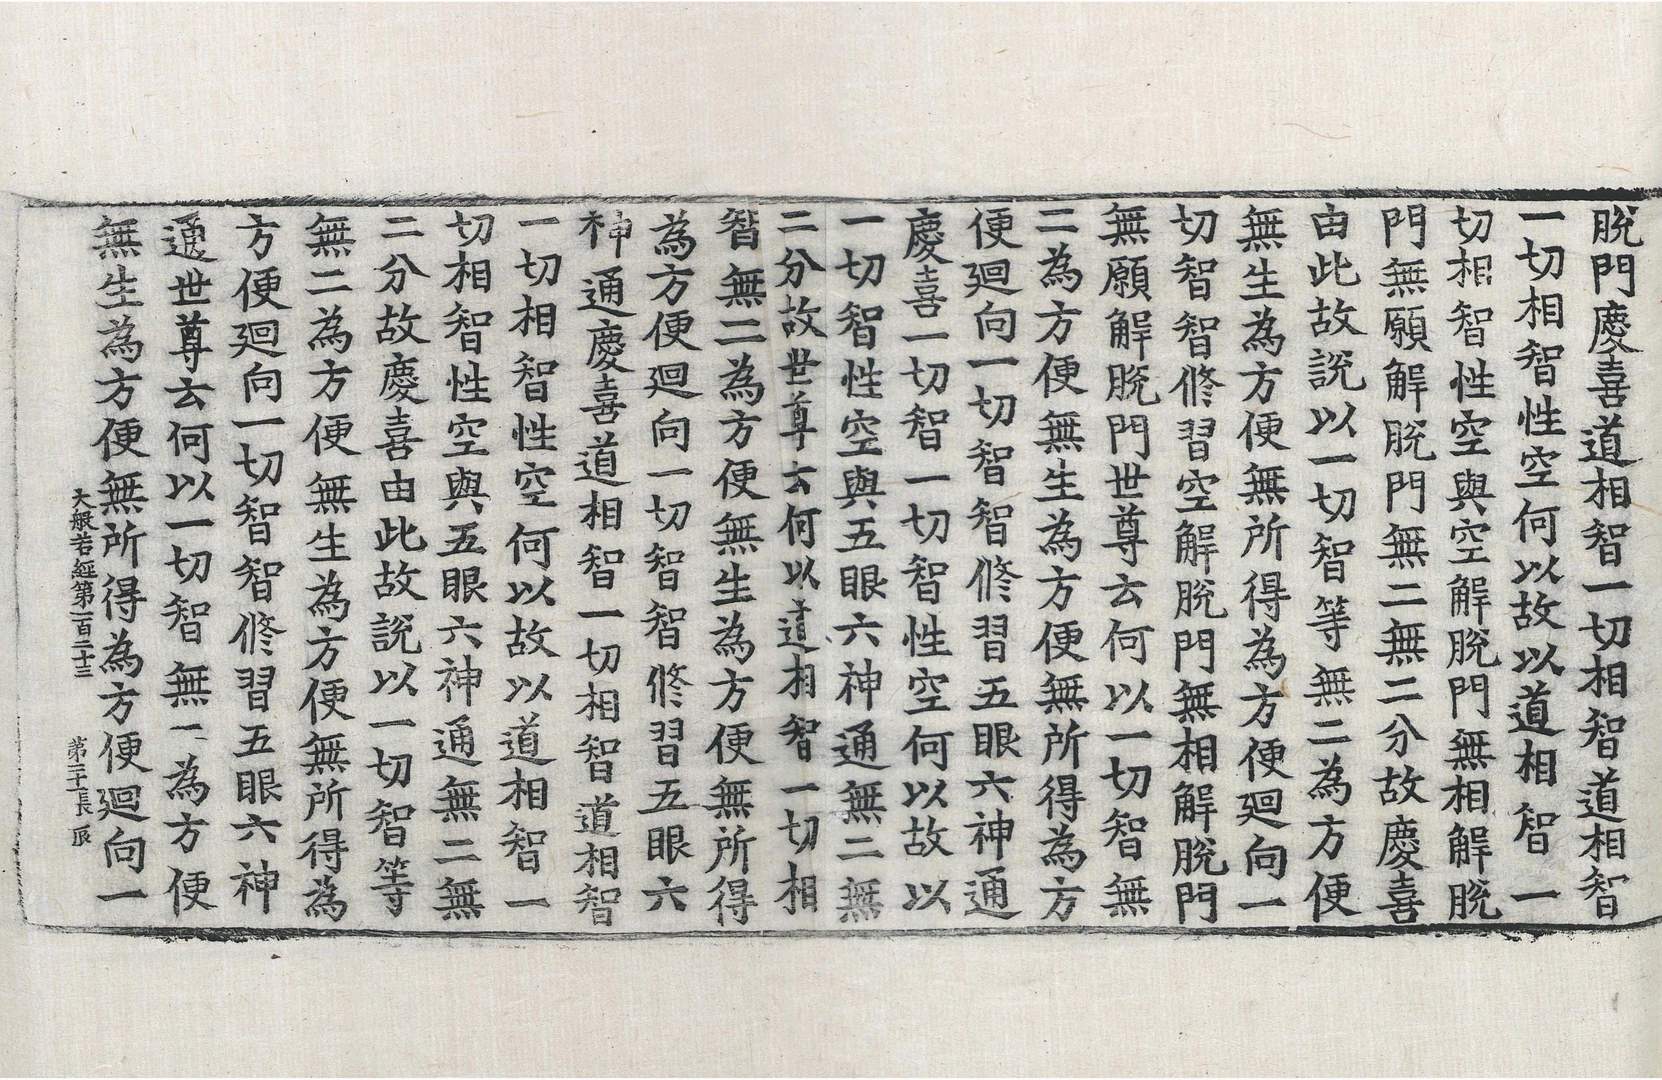 脫門慶喜道相智一切相智道相智
一切相智性空何以故以道相智一
切相智性空與空解脫門無相解脫
門無願解脫門無二無二分故慶喜
由此故說以一切智等無二為方便
無生為方便無所得為方便迴向一
切智智修習空解脫門無相解脫門
無願解脫門世尊云何以一切智無
二為方便無生為方便無所得為方
便迴向一切智智修習五眼六神通
慶喜一切智一切智性空何以故以
一切智性空與五眼六神通無二無
二分故世尊云何以道相智一切相
智無二為方便無生為方便無所得
為方便迴向一切智智修習五眼六
神通慶喜道相智一切相智道相智
一切相智性空何以故以道相智一
切相智性空與五眼六神通無二無
二分故慶喜由此故說以一切智等
無二為方便無生為方便無所得為
方便迴向一切智智修習五眼六神
通世尊云何以一切智無二為方便
無生為方便無所得為方便迴向一
大般若經第一百二十三 第二十